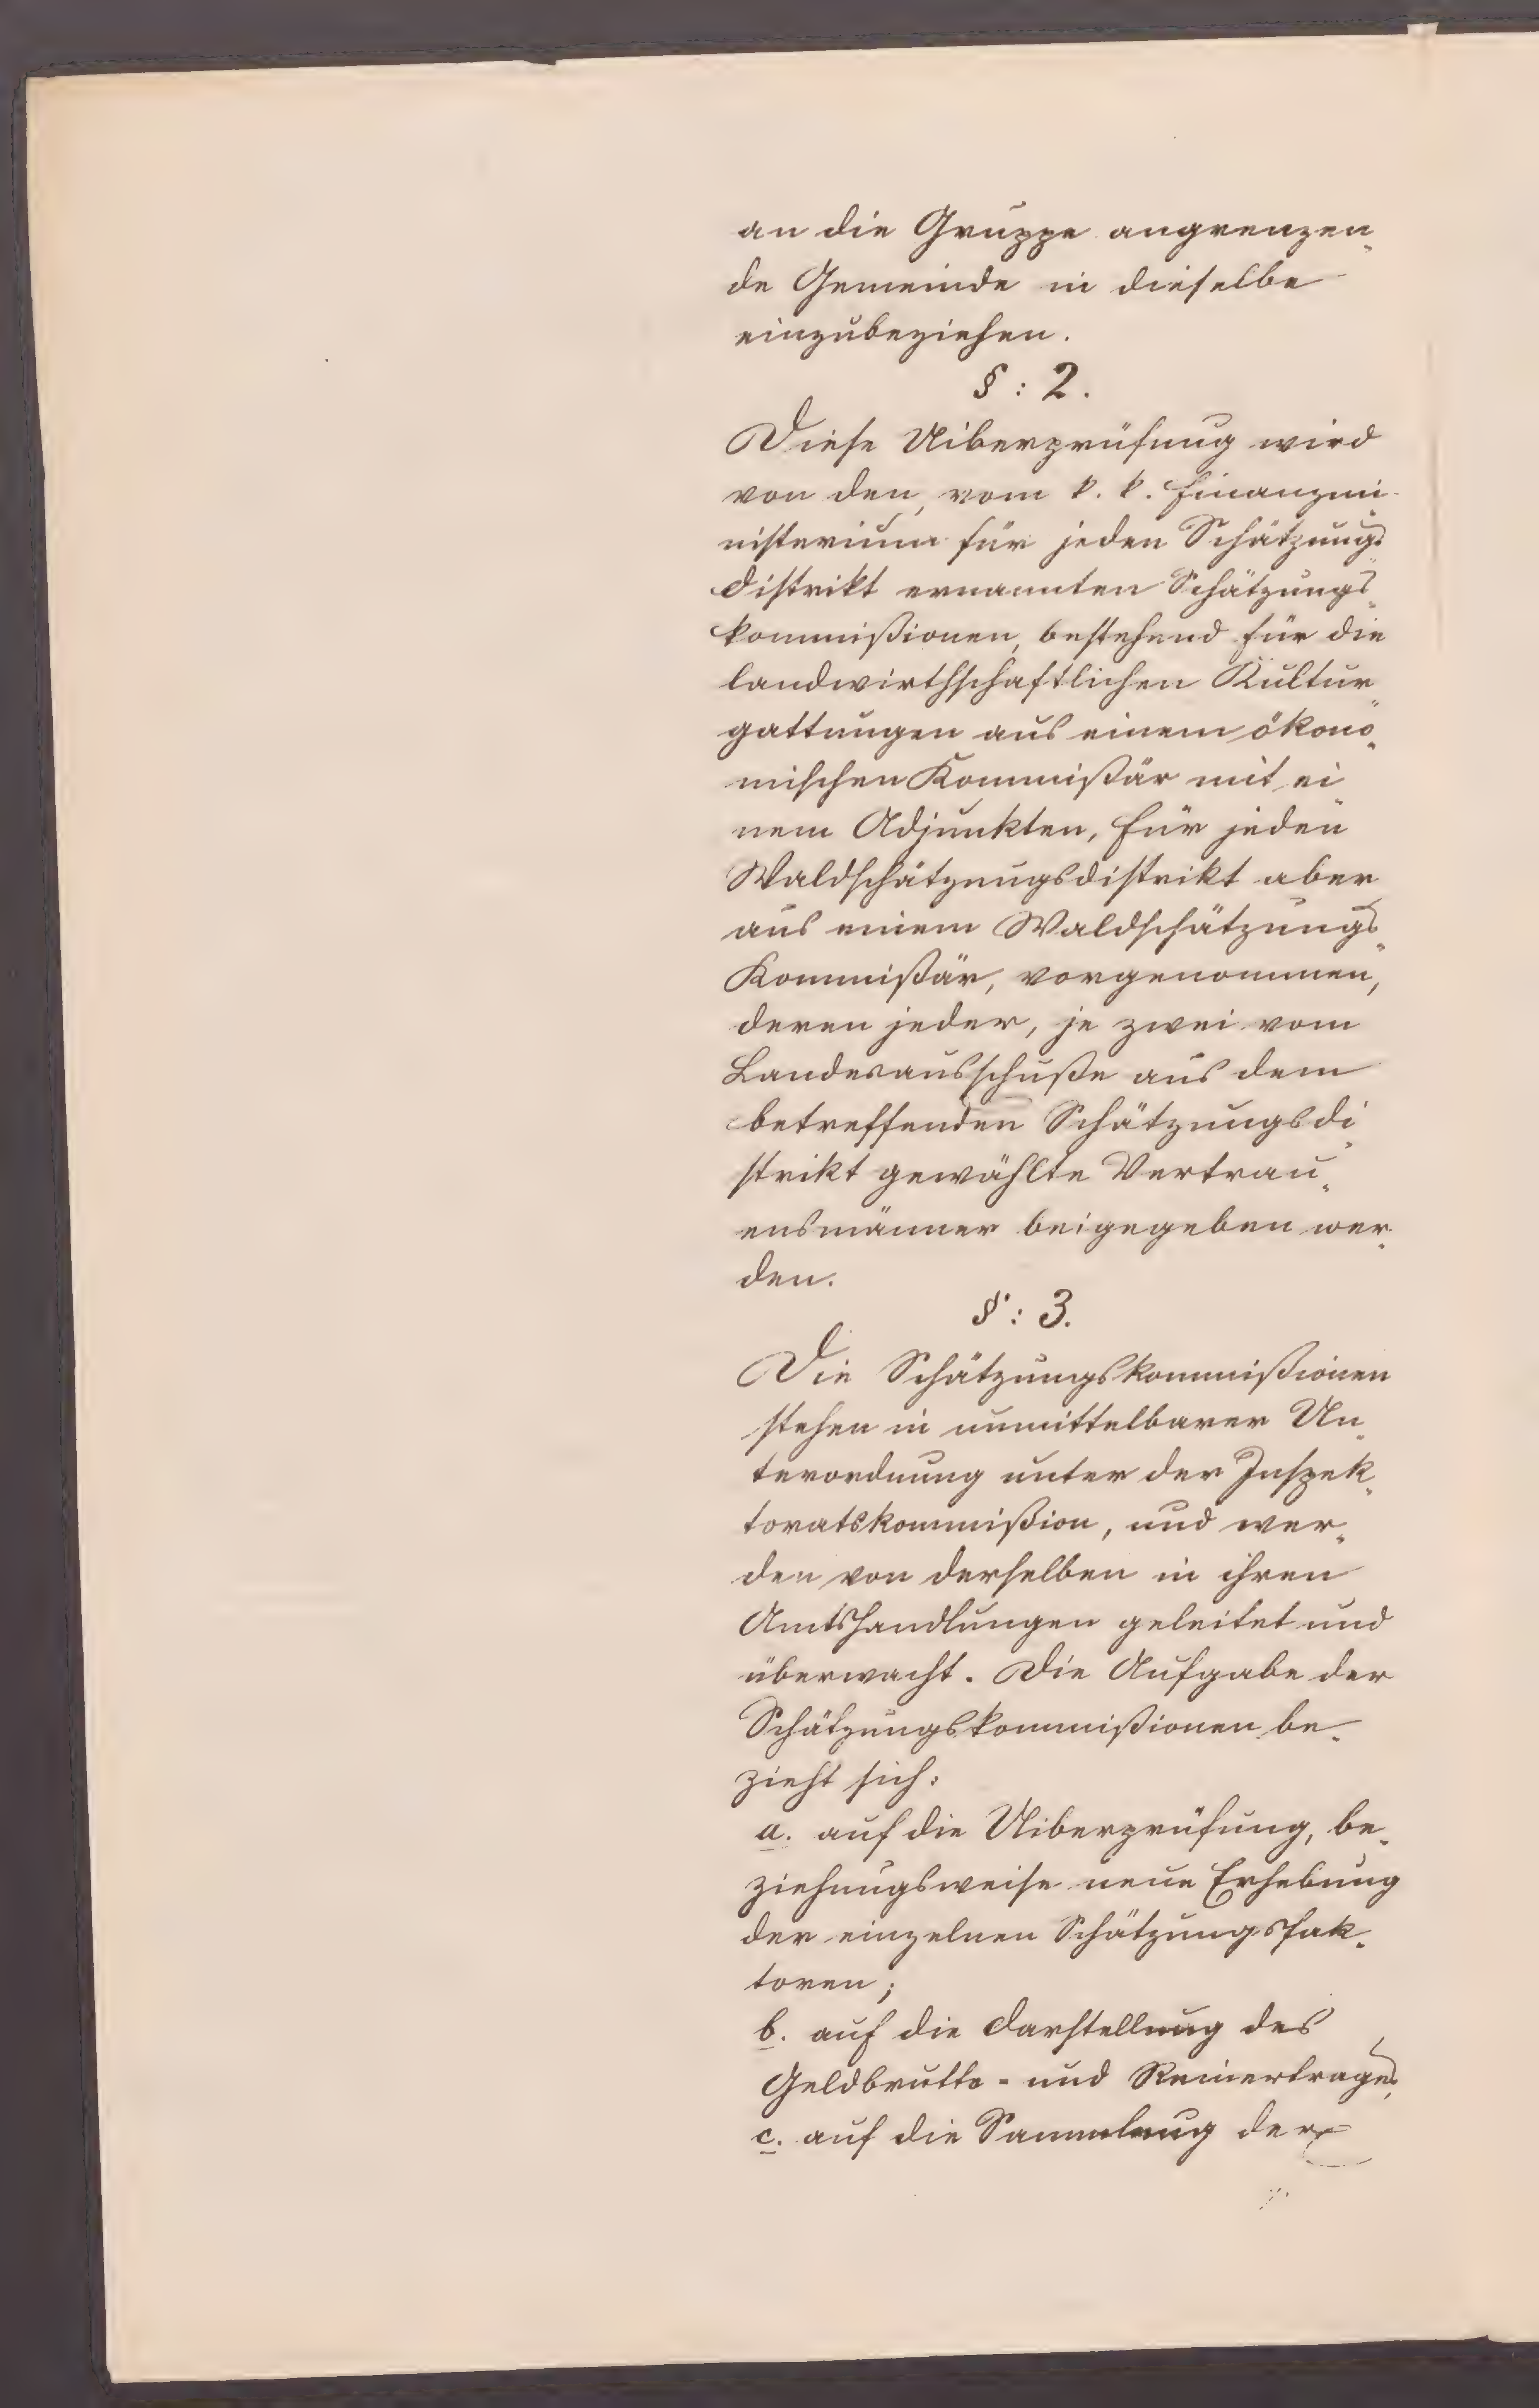 an die Gruppe angrenzen„
de Gemeinde in dieselbe
einzubeziehen.
§ : 2.
Diese Uiberprüfung wird
von den, vom k. k. Finanzmi„
nisterium für jeden Schätzungs„
distrikt ernannten Schätzungs„
kommißionen, bestehend für die
landwirthschaftlichen Kultur„
gattungen aus einem ökono„
mischen Kommißär mit ei„
nem Adjunkten, für jeden
Waldschätzungsdistrikt aber
aus einem Waldschätzungs„
Kommißär, vorgenommen,
deren jeder, je zwei vom
Landesausschuße aus dem
betreffenden Schätzungsdi„
strikt gewählte Vertrau„
ensmänner beigegeben wer„
den.
§ : 3.
Die Schätzungskommißionen
stehen in unmittelbarer Un„
terordnung unter der Inspek„
toratskommißion, und wer„
den von derselben in ihren
Amtshandlungen geleitet und
überwacht. Die Aufgabe der
Schätzungskommißionen be„
zieht sich:
a. auf die Uiberprüfung, be„
ziehungsweise neue Erhebung
der einzelnen Schätzungsfak„
toren;
b. auf die Darstellung des
Geldbrutto- und Reinertrages,
c. auf die Sammlung der